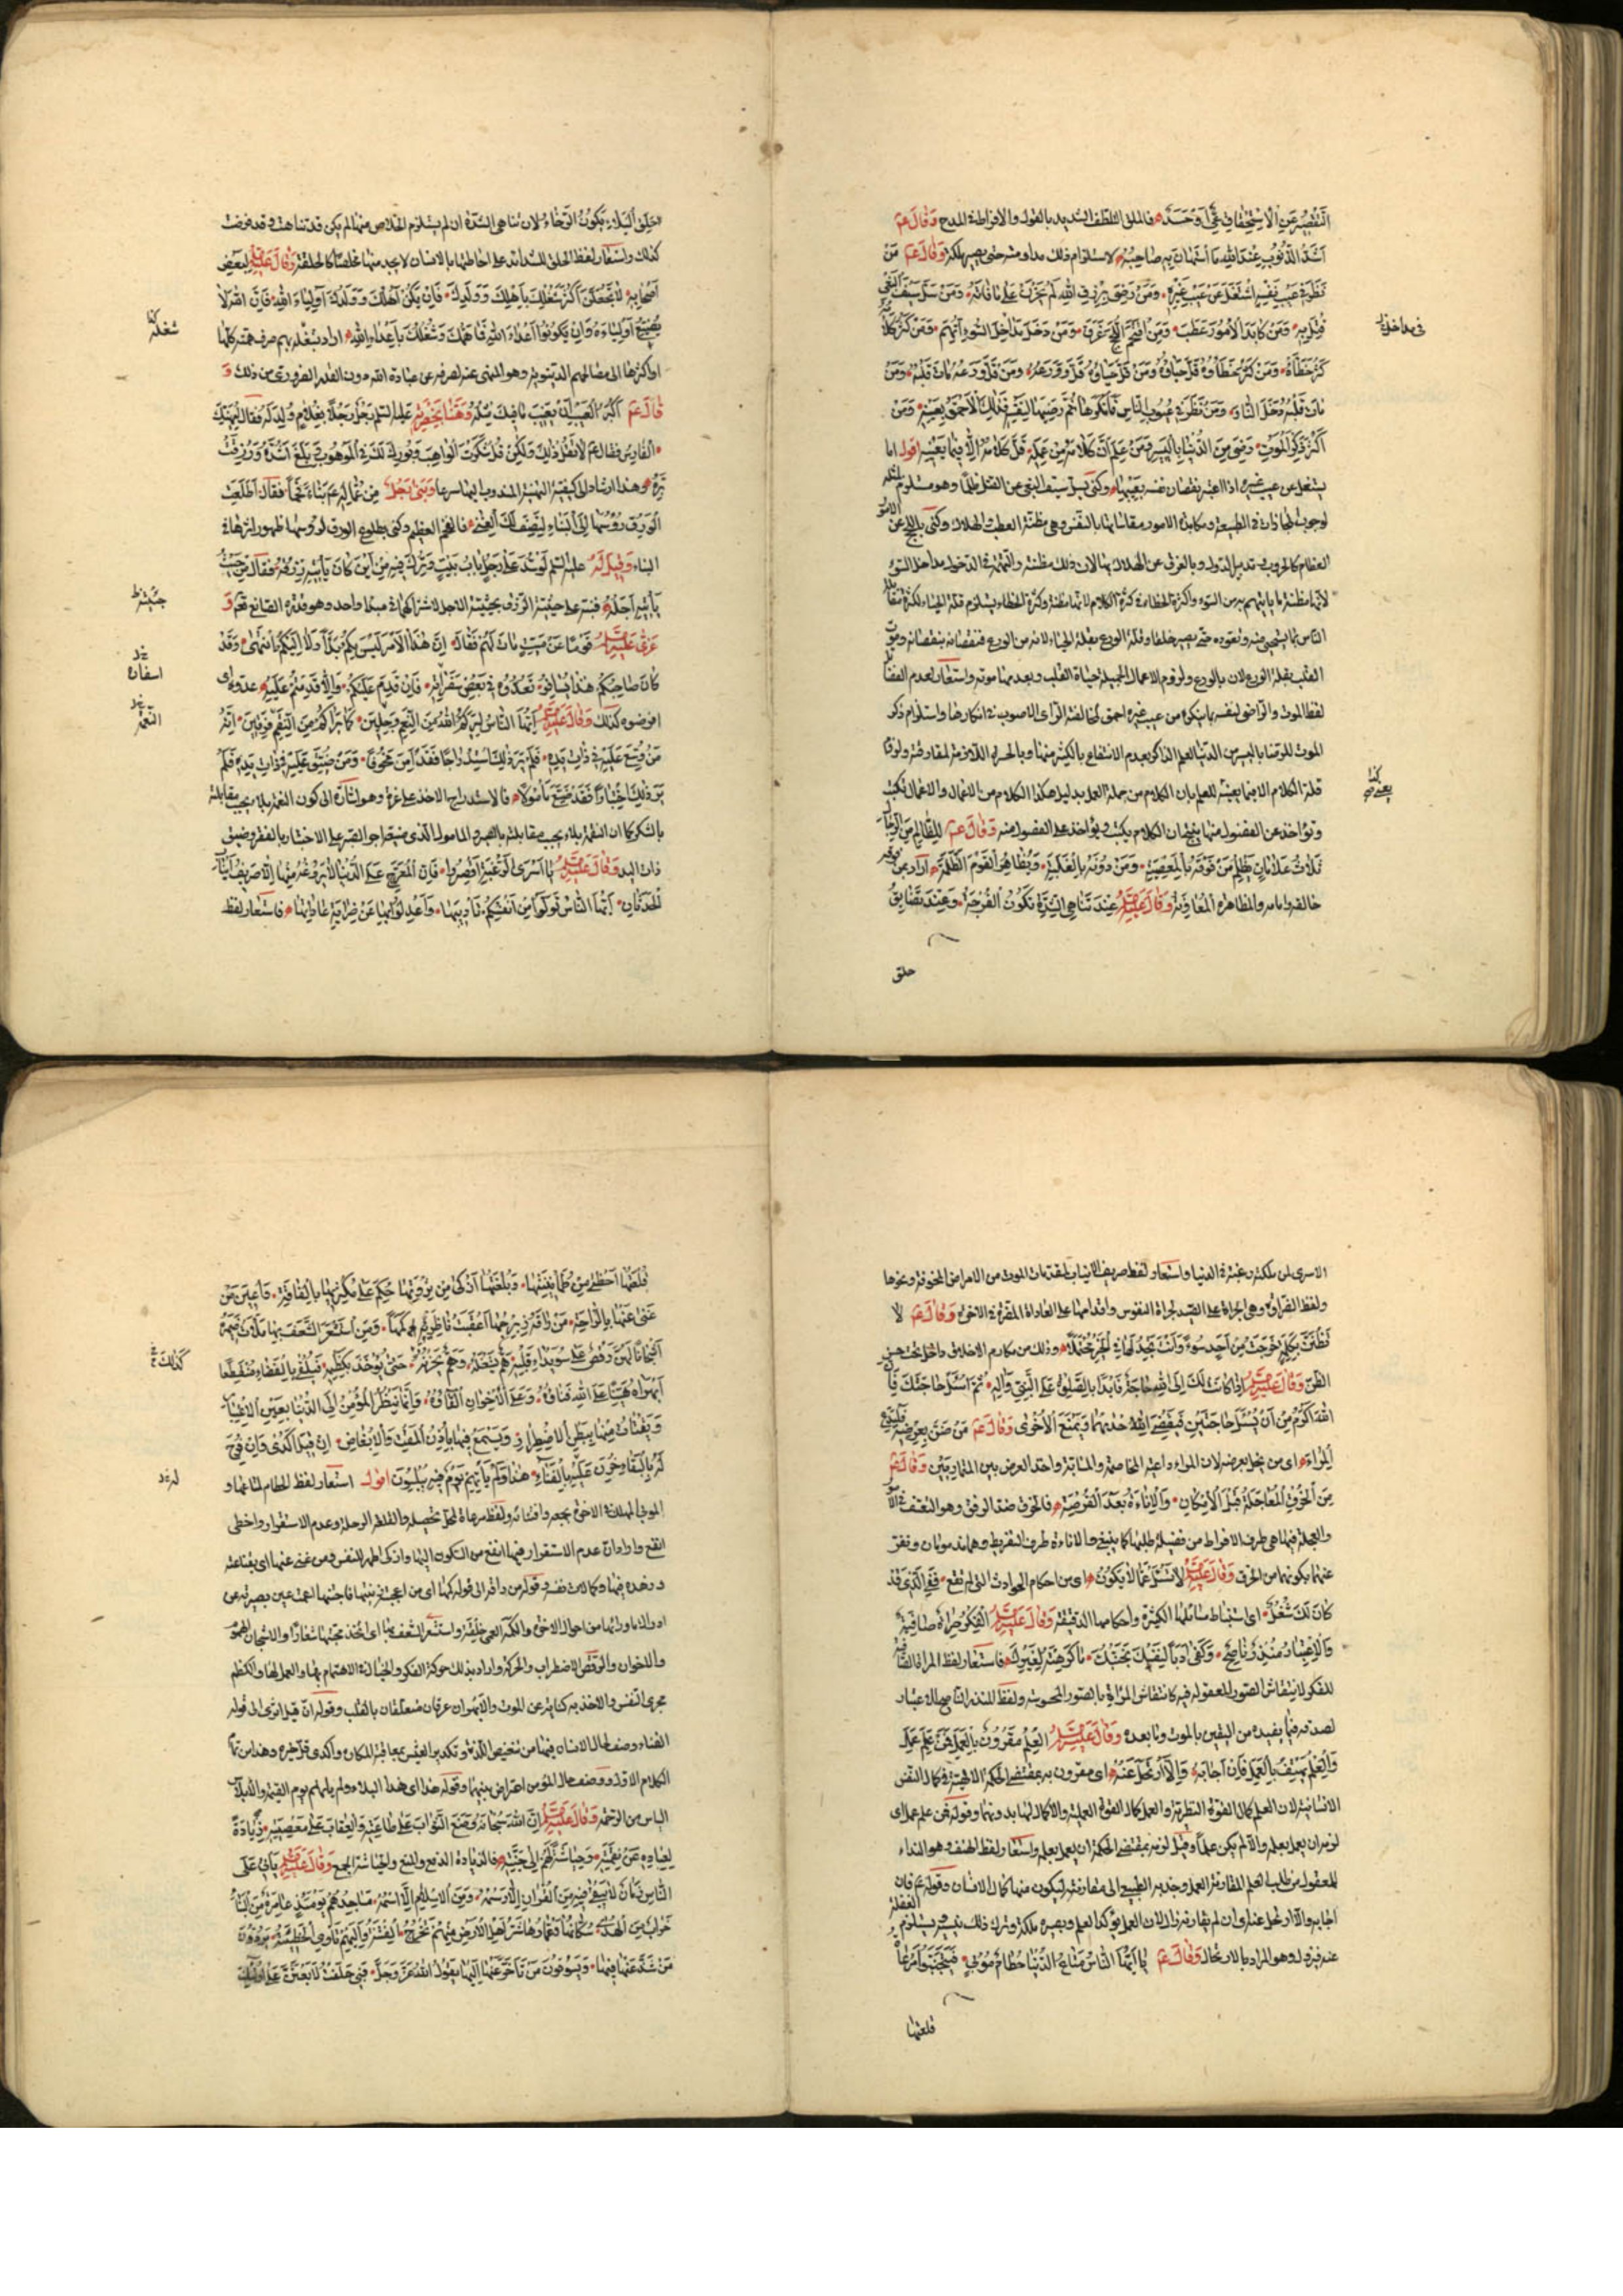 التَّقْصِيرُ عَنِ الْاِسْتِحْقَاقِ عِيٌّ اَوْ حَسَدٌ فالملق التلطف الشديد بالقول والافراط في المدح وَقَالَ عم
اَشَدُّ الذُّنُوبِ عِنْدَ اللهِ مَا اسْتَهَانَ بِهِ صَاحِبُهُ لاستلزام ذلك مداومته حتى يصير ملكة وَقَالَ عم مَنْ
نَظَرَ فِي عَيْبِ نَفْسِهِ اشْتَغَلَ عَنْ عَيْبِ غَيْرِهِ وَمَنْ رَضِيَ بِرِزْقِ اللهِ لَمْ يَحْزَنْ عَلَى مَا فَاتَهُ وَمَنْ سَلَّ سَيْفَ الْبَغْيِ
قُتِلَ بِهِ وَمَنْ كَابَدَ الْاُمُورَ عَطِبَ وَمَنِ اقْتَحَمَ اللُّجَجَ غَرِقَ وَمَنْ دَخَلَ مَدَاخِلَ السُّوءِ اتُّهِمَ وَمَنْ كَثُرَ كَلَامُهُ
كَثُرَ خَطَاؤُهُ وَمَنْ كَثُرَ خَطَاؤُهُ قَلَّ حَيَاؤُهُ وَمَنْ قَلَّ حَيَاؤُهُ قَلَّ وَرَعُهُ وَمَنْ قَلَّ وَرَعُهُ مَاتَ قَلْبُهُ وَمَنْ
مَاتَ قَلْبُهُ دَخَلَ النَّارَ وَمَنْ نَظَرَ فِي عُيُوبِ النَّاسِ فَاَنْكَرَهَا ثُمَّ رَضِيَهَا لِنَفْسِهِ فَذٰلِكَ الْاَحْمَقُ بِعَيْنِهِ وَمَنْ
اَكْثَرَ ذِكْرَ الْمَوْتِ رَضِيَ مِنَ الدُّنْيَا بِالْيَسِيرِ وَمَنْ عَلِمَ اَنَّ كَلَامَهُ مِنْ عَمَلِهِ قَلَّ كَلَامُهُ اِلَّا فِيمَا يَعْنِيهِ اقول انما
يشتغل عن عيب غيره اذا اعتبر نقصان نفسه بعيبها وكنى بسل سيف البغى عن القتل ظلما وهو مستلزم لمثله
لوجوب المجازات في الطبيعة ومكابدة الامور مقاساتها بالنفس وهى مظنة العطب والهلاك وكنى باللجج عن الامور
العظام كالحروب وتدبير الدول وبالغرق عن الهلاك بها لان ذلك مظنته والتهمة في الدخول مداخل السوء
لانها مظنة ما يتهم به من السوء واكثرة الخطاء في كثرة الكلام لانها مظنته وكثرة الخطاء يستلزم قلة الحياء لكثرة مقابلة
الناس بما يستحيى منه وتعوده حتى يصير خلقا وقلة الورع بقلة الحياء لانه من الورع فنقصانه بنقصانه وموت
القلب بقلة الورع لان بالورع ولزوم الاعمال الجميلة حياة القلب وبعدمها موته واستعار لعدم الفضائل
لفظ الموت والراضى لنفسه بما ينكره من عيب غيره احمق لمخالفته الراى الاصوب في انكارها واستلزام ذكر
الموت للرضا باليسير من الدنيا للعلم الذاكر بعدم الانتفاع بالكثير منها وبالحسرة اللازمة لمفارقته ولزوم
قلة الكلام الا فيما يعنيه للعلم بان الكلام من جملة العمل بدليل هكذا الكلام من الاعمال والاعمال تكتب
ويؤاخذ عن الفضول منها ينتج ان الكلام يكتب ويؤاخذ على الفضول منه وَقَالَ عم لِلظَّالِمِ مِنَ الرِّجَالِ
ثَلَاثُ عَلَامَاتٍ يَظْلِمُ مَنْ فَوْقَهُ بِالْمَعْصِيَةِ وَمَنْ دُونَهُ بِالْغَلَبَةِ وَيُظَاهِرُ الْقَوْمَ الظَّلَمَةَ اراد بمن فوقه
خالقه وامامه والمظاهرة المعاونة وَقَالَ عَلَيْهِ السَّلَمُ عِنْدَ تَنَاهِي الشِّدَّةِ تَكُونُ الْفُرْجَةُ وَعِنْدَ تَضَايُقِ
حلق
حَلَقِ الْبَلَاءِ يَكُونُ الرَّخَاءُ لان تناهى الشدة ان لم يستلزم الخلاص منها لم يكن قد تناهت وقد فرضت
كذلك واستعار لفظ الحلق للشدائد على احاطتها بالانسان لا يجد منها مخلصا كالحلقة وَقَالَ عَلَيْهِ السَّلَمُ لِبَعْضِ
اَصْحَابِهِ لَا تَجْعَلَنَّ اَكْثَرَ شُغْلِكَ بِاَهْلِكَ وَوَلَدِكَ فَاِنْ يَكُنْ اَهْلُكَ وَوَلَدُكَ اَوْلِيَاءَ اللهِ فَاِنَّ اللهَ لَا
يُضَيِّعُ اَوْلِيَاءَهُ وَاِنْ يَكُونُوا اَعْدَاءَ اللهِ فَمَا هَمُّكَ وَشُغْلُكَ بِاَعْدَاءِ اللهِ اراد بشغله بهم صرف همته كلها
او اكثرها الى مصالحهم الدنيوية وهو المنهى عنه لصرفه عن عبادة الله دون القدر الضرورى من ذلك وَ
قَالَ عم اَكْبَرُ الْعَيْبِ اَنْ تَعِيبَ مَا فِيكَ مِثْلُهُ وَهَنَّا بِحَضْرَتِهِ عليه السلم رَجُلٌ رَجُلًا بِغُلَامٍ وُلِدَ لَهُ فَقَالَ لِيَهْنِكَ
الْفَارِسُ فقال عم لَا تَقُلْ ذٰلِكَ وَلٰكِنْ قُلْ شَكَرْتَ الْوَاهِبَ وَبُورِكَ لَكَ فِي الْمَوْهُوبِ وَبَلَغَ اَشُدَّهُ وَرُزِقْتَ
بِرَّهُ وهذا ارشاد الى كيفية التهنية المندوب اليها شرعا وَبَنَى رَجُلٌ مِنْ عُمَّالِهِ عم بِنَاءً فَخْمًا فَقَالَ اَطْلَعَتِ
الْوَرِقُ رُؤُسَهَا اِنَّ الْبِنَاءَ لَيَصِفُ لَكَ الْغِنٰى فالفخم العظيم وكنى بطلوع الورق لرؤسها ظهور اثرها في
البناء وَقِيلَ لَهُ عليه السلم لَوْ سُدَّ عَلَى رَجُلٍ بَابُ بَيْتٍ وَتُرِكَ فِيهِ مِنْ اَيْنَ كَانَ يَأْتِيهِ رِزْقُهُ فَقَالَ مِنْ حَيْثُ
يَأْتِيهِ اَجَلُهُ فنبه على حيثية الرزق بحيثية الاجل لاشتراكهما في مبدا واحد وهو قدرة الصانع تعم وَ
عَزَّى عَلَيْهِ السَّلَمُ قَوْمًا عَنْ مَيِّتٍ مَاتَ لَهُمْ فَقَالَ اِنَّ هٰذَا الْاَمْرَ لَيْسَ بِكُمْ بَدَأَ وَلَا اِلَيْكُمُ انْتَهٰى وَقَدْ
كَانَ صَاحِبُكُمْ هٰذَا يُسَافِرُ فَعُدُّوهُ فِي بَعْضِ سَفَرَاتِهِ فَاِنْ قَدِمَ عَلَيْكُمْ وَاِلَّا قَدِمْتُمْ عَلَيْهِ عدوه اى
افرضوه كذلك وَقَالَ عَلَيْهِ السَّلَمُ اَيُّهَا النَّاسُ لِيَرَكُمُ اللهُ مِنَ النِّعَمِ وَجِلِينَ كَمَا يَرَاكُمْ مِنَ النِّقَمِ فَرِقِينَ اِنَّهُ
مَنْ وُسِّعَ عَلَيْهِ فِي ذَاتِ يَدِهِ فَلَمْ يَرَ ذٰلِكَ اسْتِدْرَاجًا فَقَدْ اَمِنَ مَخُوفًا وَمَنْ ضُيِّقَ عَلَيْهِ فِي ذَاتِ يَدِهِ فَلَمْ
يَرَ ذٰلِكَ اخْتِبَارًا فَقَدْ ضَيَّعَ مَأْمُولًا فالاستدراج الاخذ على غرة وهو اشارة الى كون النعمة بلاء يجب مقابلته
بالشكر كما ان النقمة بلاء يجب مقابلته بالصبر والمامول الذى ضيعه اجر الصبر على الاختبار بالفقر وضيق
ذات اليد وَقَالَ عَلَيْهِ السَّلَمُ يَا اَسْرَى الرَّغْبَةِ اَقْصِرُوا فَاِنَّ الْمُعَرِّجَ عَلَى الدُّنْيَا لَا يَرُوعُهُ مِنْهَا اِلَّا صَرِيفُ اَنْيَابِ
الْحَدَثَانِ اَيُّهَا النَّاسُ تَوَلَّوْا مِنْ اَنْفُسِكُمْ تَأْدِيبَهَا وَاعْدِلُوا بِهَا عَنْ ضَرَايَةِ عَادَاتِهَا فاستعار لفظ
شغله
اسفاره
النعمة
الاسرى لمن ملكته رغبته في الدنيا واستعار لفظ صريف الانياب لمقدمات الموت من الامراض المخوفة ونحوها
ولفظ الضراوة وهى الجراة على الصيد لجراة النفوس واقدامها على العادات المضرة في الاخرى وَقَالَ عم لَا
تَظُنَّنَّ بِكَلِمَةٍ خَرَجَتْ مِنْ اَحَدٍ سُوءًا وَاَنْتَ تَجِدُ لَهَا فِي الْخَيْرِ مُحْتَمَلًا وذلك من مكارم الاخلاق داخل تحت حسن
الظن وَقَالَ عَلَيْهِ السَّلَمُ اِذَا كَانَتْ لَكَ اِلَى اللهِ حَاجَةٌ فَابْدَأْ بِالصَّلٰوةِ عَلَى النَّبِيِّ وَاٰلِهِ ثُمَّ اسْئَلْ حَاجَتَكَ فَاِنَّ
اللهَ اَكْرَمُ مِنْ اَنْ يُسْئَلَ حَاجَتَيْنِ فَيَقْضِيَ اِحْدَيهُمَا وَيَمْنَعَ الْاُخْرٰى وَقَالَ عم مَنْ ضَنَّ بِعِرْضِهِ فَلْيَدَعِ
الْمِرَاءَ اى من بخل بعرضه لان المراء داعية المخاصمة والمشاتمة واخذ العرض بين المتماريين وَقَالَ عم
مِنَ الْخُرْقِ الْمُعَاجَلَةُ قَبْلَ الْاِمْكَانِ وَالْاَنَاةُ بَعْدَ الْفُرْصَةِ فالخرق ضد الرفق وهو التعسف في الامور
والعجلة فيها هى طرف الافراط من فضيلة طلبها كما ينبغى والاناءة طرف التفريط وهما مذمومان ونفر
عنهما بكونهما من الخرق وَقَالَ عَلَيْهِ السَّلَمُ لَا تَسْئَلْ عَمَّا لَا يَكُونُ اى من احكام الحوادث التى لم تقع فَفِي الَّذِي قَدْ
كَانَ لَكَ شُغُلٌ اى استنباط مسائلها الكثيرة واحكامها الدقيقة وَقَالَ عَلَيْهِ السَّلَمُ الْفِكْرُ مِرْاٰةٌ صَافِيَةٌ
وَالْاِعْتِبَارُ مُنْذِرٌ نَاصِحٌ وَكَفٰى اَدَبًا لِنَفْسِكَ تَجَنُّبُكَ مَا كَرِهْتَهُ لِغَيْرِكَ فاستعار لفظ المراة الصافية
للفكر لانتقاش الصور المعقولة فيه كانتقاش المراة بالصور المحسوسة ولفظ المنذر الناصح للاعتبار
لصدقه فيما يفيده من اليقين بالموت وما بعده وَقَالَ عَلَيْهِ السَّلَمُ الْعِلْمُ مَقْرُونٌ بِالْعَمَلِ فَمَنْ عَلِمَ عَمِلَ
وَالْعِلْمُ يَهْتِفُ بِالْعَمَلِ فَاِنْ اَجَابَهُ وَاِلَّا ارْتَحَلَ عَنْهُ اى مقرون به بمقتضى الحكمة الالهية في كمال النفس
الانسانية لان العلم كمال القوة النظرية والعمل كمال القوة العملية ولا كمال لها بدونهما وقوله فمن علم عمل اى
للمعقول من طلب العلم المقارنة العمل وجذبه الطبيعى الى مقارنته ليكون منهما كمال الانسان وقوله عم فان
اجابه والا ارتحل عنه اى وان لم يقارنه زال لان العمل يؤكد العلم ويصيره ملكة وترك ذلك
عنه فيزول وهو المراد بالارتحال وَقَالَ عم يَا اَيُّهَا النَّاسُ مَتَاعُ الدُّنْيَا حُطَامٌ مُوبِئٌ فَتَجَنَّبُوا مَرْعَاةً
قلعتها
قُلْعَتُهَا اَحْظٰى مِنْ طُمَأْنِينَتِهَا وَبُلْغَتُهَا اَزْكٰى مِنْ ثَرْوَتِهَا حُكِمَ عَلَى مُكْثِرِيهَا بِالْفَاقَةِ وَاُعِينَ مَنْ
غَنِيَ عَنْهَا بِالرَّاحَةِ مَنْ رَاقَهُ زِبْرِجُهَا اَعْقَبَتْ نَاظِرَيْهِ كَمَهًا وَمَنِ اسْتَشْعَرَ الشَّعَفَ بِهَا مَلَاَتْ ضَمِيرَهُ
اَشْجَانًا لَهُنَّ رَقْصٌ عَلَى سُوَيْدَاءِ قَلْبِهِ هَمٌّ يَشْغَلُهُ وَهَمٌّ يَحْزُنُهُ حَتّٰى يُؤْخَذَ بِكَظَمِهِ فَيُلْقٰى بِالْفَضَاءِ مُنْقَطِعًا
اَبْهَرَاهُ هَيِّنًا عَلَى اللهِ فَنَاؤُهُ وَعَلَى الْاِخْوَانِ اِلْقَاؤُهُ وَاِنَّمَا يَنْظُرُ الْمُؤْمِنُ اِلَى الدُّنْيَا بِعَيْنِ الْاِعْتِبَارِ
وَيَقْتَاتُ مِنْهَا بِبَطْنِ الْاِضْطِرَارِ وَيَسْمَعُ فِيهَا بِاُذُنِ الْمَقْتِ وَالْاِبْغَاضِ اِنْ قِيلَ اَكْدٰى وَاِنْ فُرِحَ
لَهُ بِالْبَقَاءِ حُزِنَ عَلَيْهِ بِالْفَنَاءِ هٰذَا وَلَمْ يَأْتِهِمْ يَوْمٌ فِيهِ يُبْلِسُونَ اقول استعار لفظ الحطام لمتاعها و
الموبئ المهلك في الاخرى بجمعه واقتنائه ولفظ مرعاة لمحل تحصيله والقلعة الرحلة وعدم الاستقرار واحظى
انفع واراد ان عدم الاستقرار فيها انفع من السكون اليها وازكى اطهر للنفس ومن غنى عنها اى بقناعته
وزهده فيها
ادراك ما وراءها من احوال الاخرى والكمه العمى خلقة واستشعر الشعف بها اى اتخذ محبتها شعارا والاشجان الهموم
والاحزان والرقص الاضطراب والحركة واراد بذلك حركة الفكر والخيال في الاهتمام بها والعمل لها والكظم
مجرى النفس والاخذ به كناية عن الموت والابهران عرقان متعلقان بالقلب وقوله ان قيل اثرى الى قوله
الفناء وصف لحال الانسان فيها من تنغيص اللذة وتكدير العيش
الكلام الاول ووصف حال المؤمن اعتراض بينهما وقوله هذا اى هذا البلاء ولم ياتهم يوم القيمة والابلاس
الياس من الرحمة وَقَالَ عَلَيْهِ السَّلَمُ اِنَّ اللهَ سُبْحَانَهُ وَضَعَ الثَّوَابَ عَلَى طَاعَتِهِ وَالْعِقَابَ عَلَى مَعْصِيَتِهِ ذِيَادَةً
لِعِبَادِهِ عَنْ نِقْمَتِهِ وَحِيَاشَةً لَهُمْ اِلَى جَنَّتِهِ فالذيادة الدفع والمنع والحياشة الجمع وَقَالَ عَلَيْهِ السَّلَمُ يَأْتِي عَلَى
النَّاسِ زَمَانٌ لَا يَبْقٰى فِيهِ مِنَ الْقُرْاٰنِ اِلَّا رَسْمُهُ وَمِنَ الْاِسْلَامِ اِلَّا اسْمُهُ مَسَاجِدُهُمْ يَوْمَئِذٍ عَامِرَةٌ مِنَ الْبِنَاءِ
خَرَابٌ مِنَ الْهُدٰى سُكَّانُهَا وَعُمَّارُهَا شَرُّ اَهْلِ الْاَرْضِ مِنْهُمْ تَخْرُجُ الْفِتْنَةُ وَاِلَيْهِمْ تَأْوِي الْخَطِيئَةُ يَرُدُّونَ
مَنْ شَذَّ عَنْهَا فِيهَا وَيَسُوقُونَ مَنْ تَأَخَّرَ عَنْهَا اِلَيْهَا يَقُولُ اللهُ عَزَّ وَجَلَّ فَبِي حَلَفْتُ لَاَبْعَثَنَّ عَلَى اُولٰئِكَ
كذلك